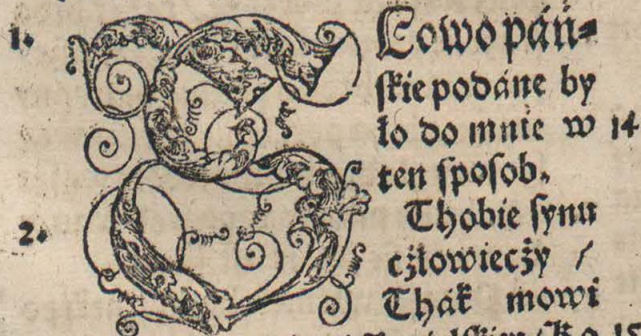 1. SŁowo páń⸗
skie podáne by
ło do mnie w 14
ten sposob.
2. Thobie synu
człowieczy /
Thák mowi